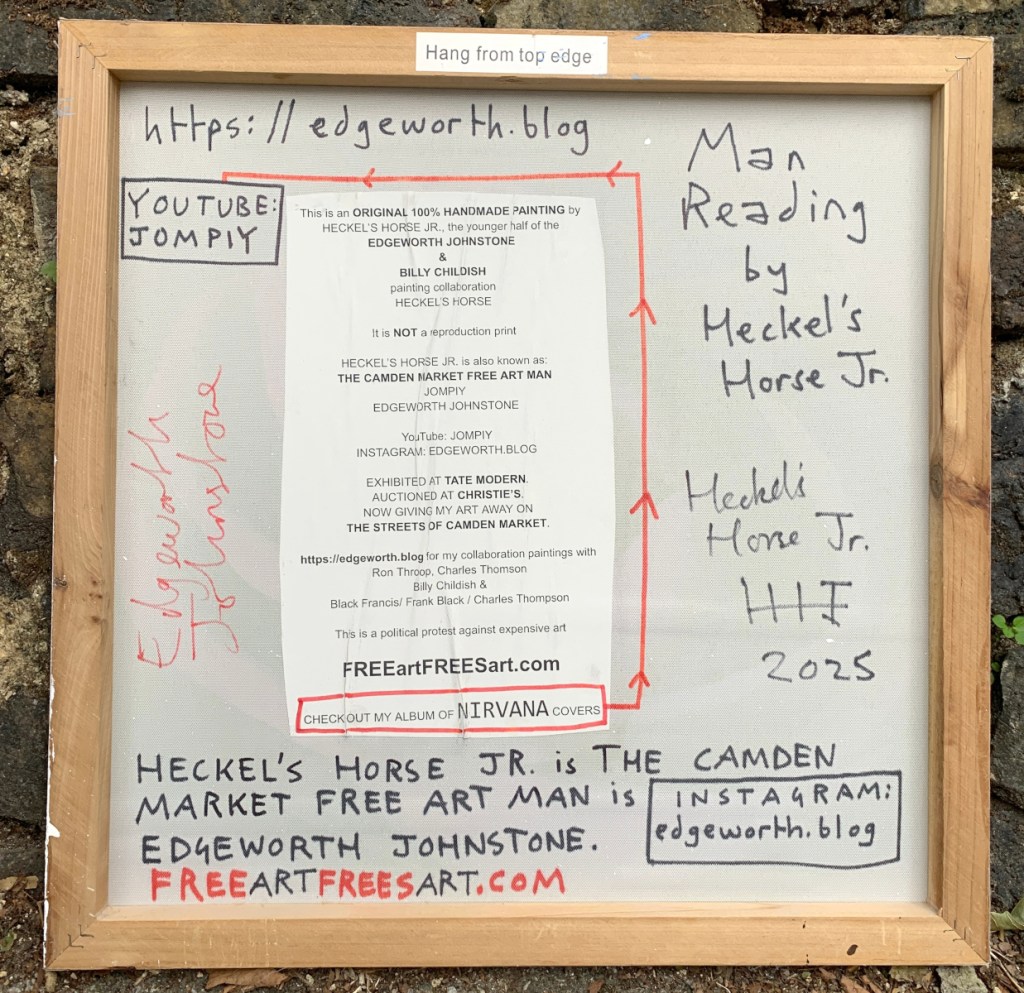 Hang from top edge
https://edgeworth.blog
YOUTUBE:
JOMPIY
This is an ORIGINAL 100% HANDMADE PAINTING by
HECKEL'S HORSE JR., the younger half of the
EDGEWORTH JOHNSTONE
&
BILLY CHILDISH
painting collaboration
HECKEL'S HORSE
It is NOT a reproduction print
HECKEL'S HORSE JR. is also known as:
THE CAMDEN MARKET FREE ART MAN
JOMPIY
EDGEWORTH JOHNSTONE
YouTube: JOMPIY
INSTAGRAM: EDGEWORTH.BLOG
EXHIBITED AT TATE MODERN.
AUCTIONED AT CHRISTIE'S.
NOW GIVING MY ART AWAY ON
THE STREETS OF CAMDEN MARKET.
https://edgeworth.blog for my collaboration paintings with
Ron Throop, Charles Thomson
Billy Childish &
Black Francis/ Frank Black / Charles Thompson
This is a political protest against expensive art
FREEartFREESart.com
CHECK OUT MY ALBUM OF NIRVANA COVERS
Edgeworth
Johnstone
Man
Reading
by
Heckel's
Horse Jr.
Heckel's
Horse Jr.
HIE
2025
HECKEL'S HORSE JR. is THE CAMDEN
MARKET FREE ART MAN is
EDGEWORTH JOHNSTONE.
INSTAGRAM:
edgeworth.blog
FREEARTFREESART.COM